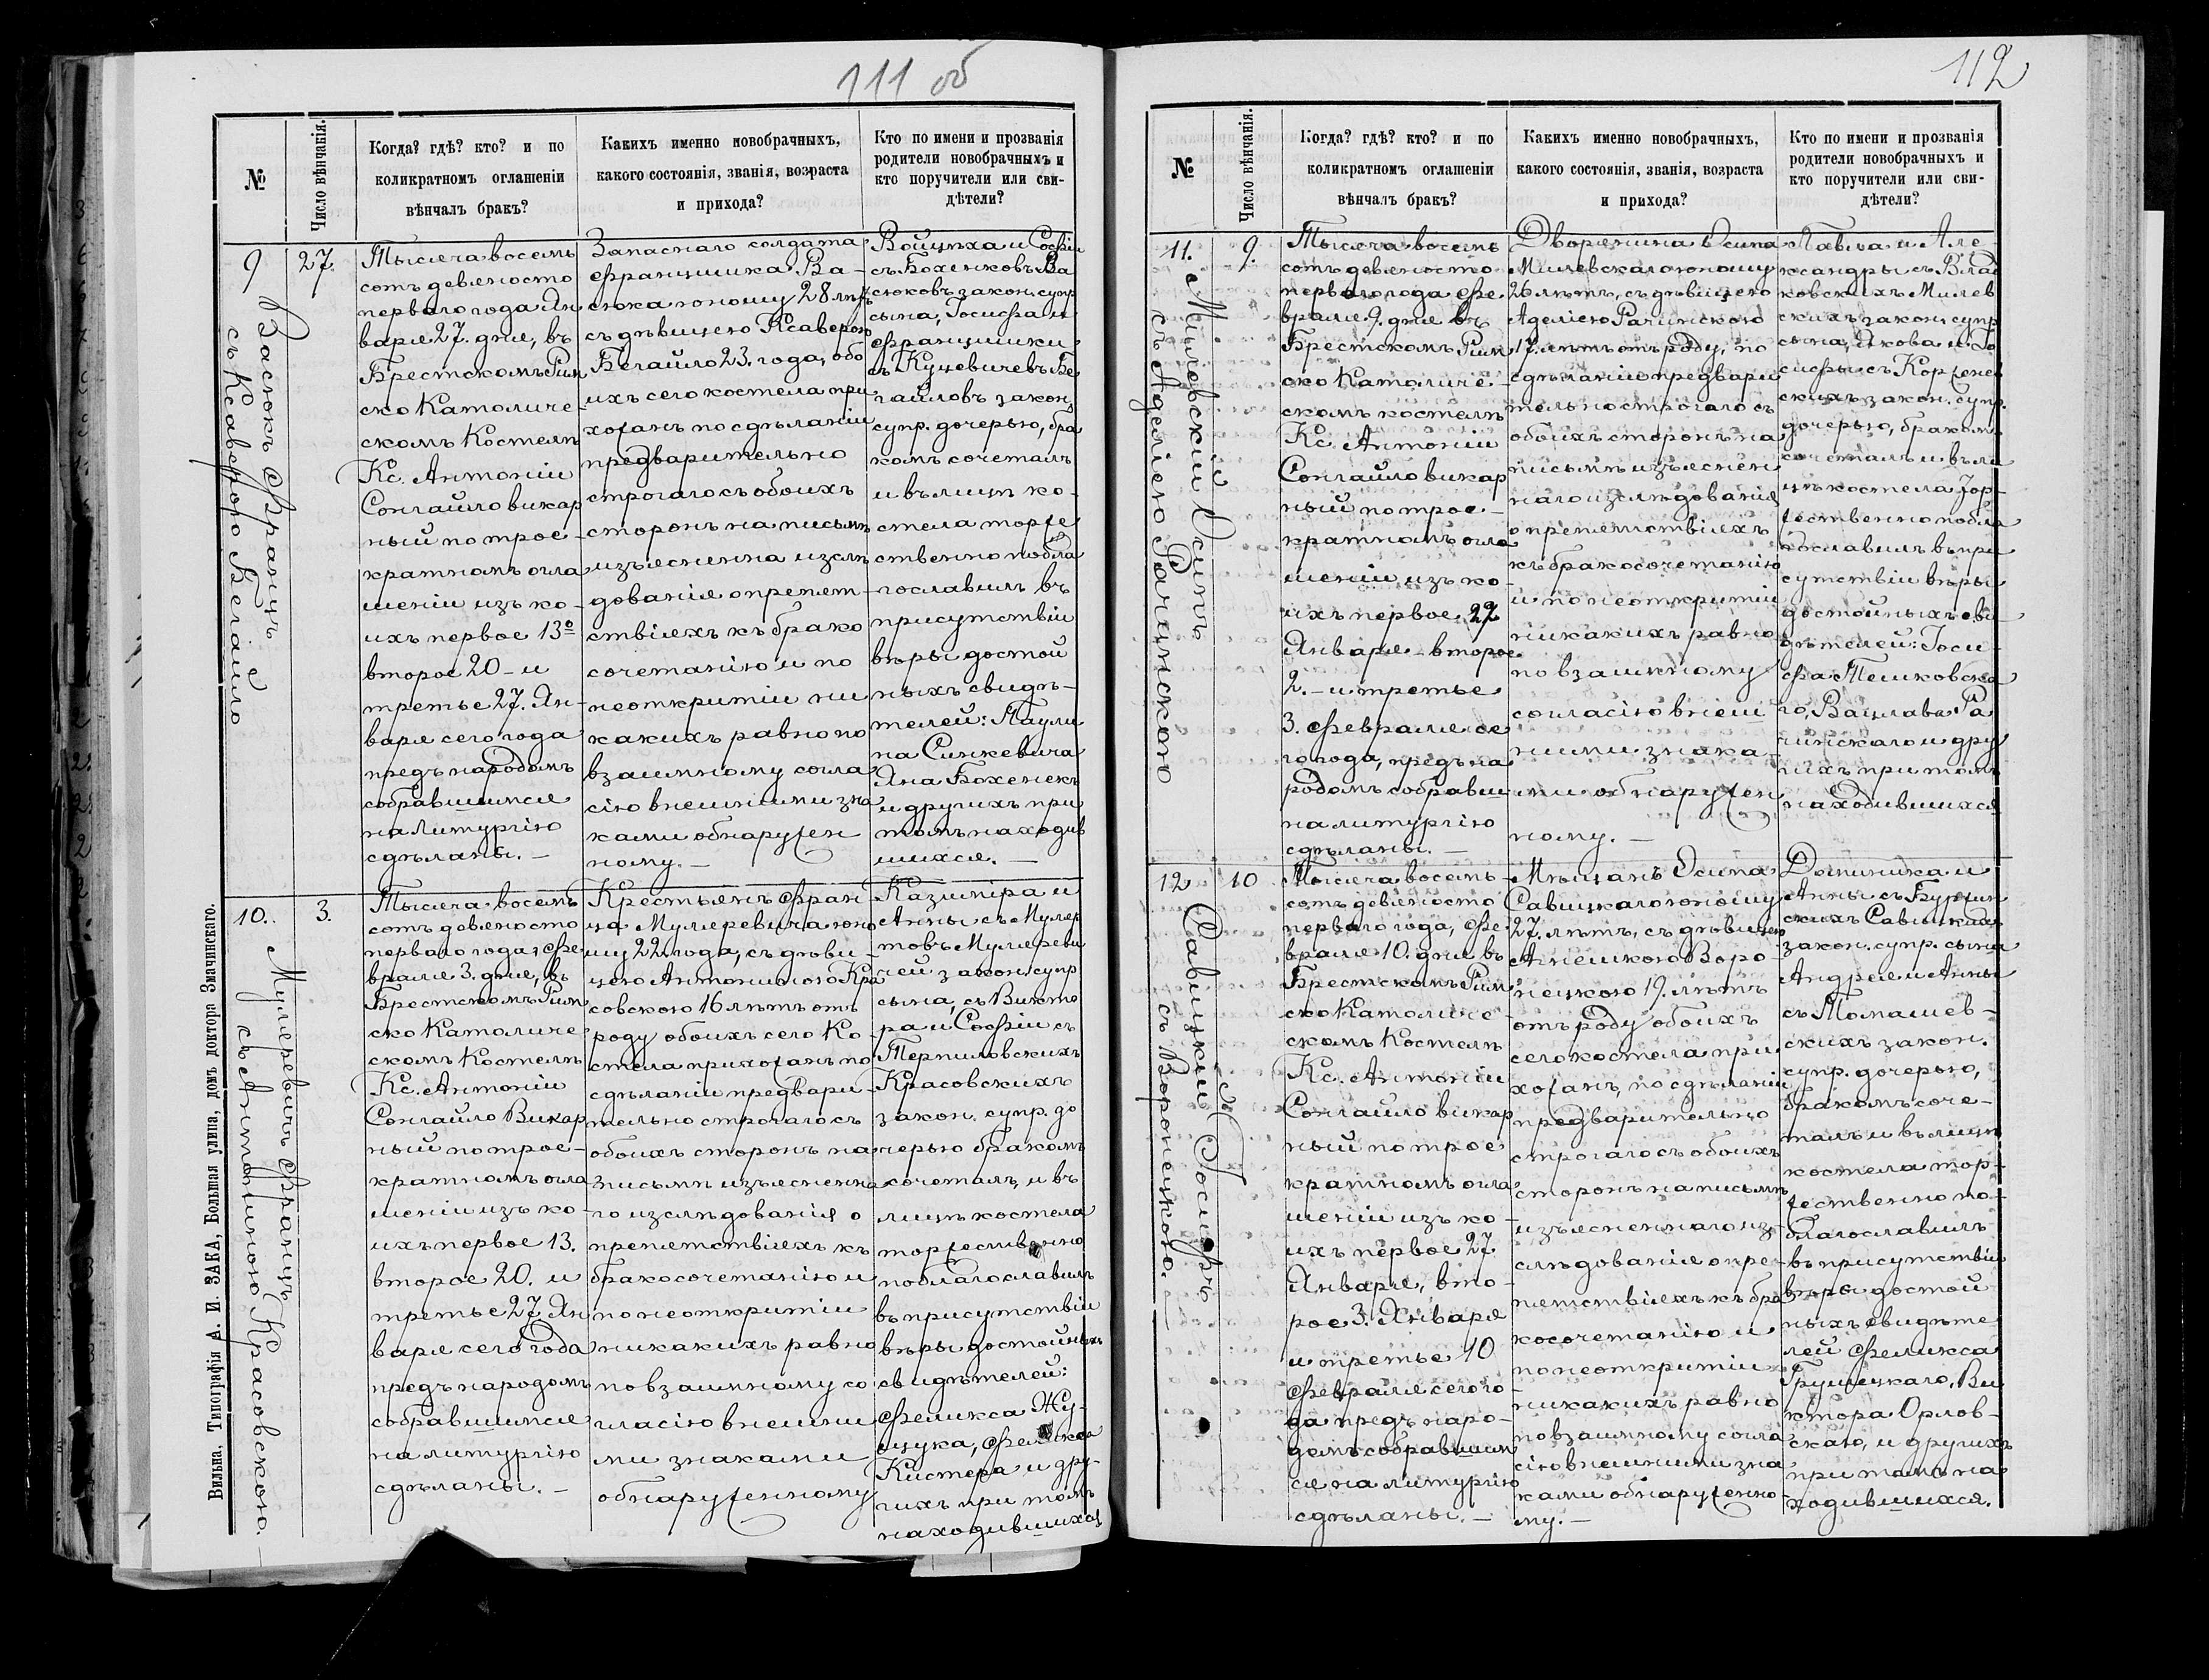 111 об
№
Число вѣнчанія.
Когда? гдѣ? кто? и по
коликратномъ оглашеніи
вѣнчалъ бракъ?
Какихъ именно новобрачныхъ,
какого состоянія, званія, возраста
и прихода?
Кто по имени и прозванія
родители новобрачныхъ и
кто поручители или сви-
дѣтели?
9
27.
Васюкъ Францъ
съ Ксаверою Бегайло
Тысяча восемь
сотъ девяносто
перваго года Ян
варя 27. дня, въ
Брестскомъ Рим
ско Католиче-
скомъ Костелѣ
Кс. Антоній
Сонгайло викар
ный по трое-
кратномъ огла
шеніи изъ ко-
ихъ первое 13º
второе 20 - и
третье 27. Ян-
варя сего года
предъ народомъ
собравшимся
на Литургію
сдѣланы. -
Запаснаго солдата
Францишка Ва-
сюка юношу 28 лѣтъ
съ дѣвицею Ксаверою
Бегайло 23. года, обо
ихъ сего костела при
хожанъ по сдѣланіи
предварительно
строгаго съ обоихъ
сторонъ на письмѣ
изъясненна изслѣ
дованія о препят-
ствіяхъ къ брако
сочетанію и по
неоткритіи ни
какихъ равно по
взаимному согла
сію внешними зна
ками обнаружен
ному. -
Войцѣха и Софіи
съ Боженковъ Ва
сюковъ закон. супр
сына, Іосифа и
Францишки
съ Куцевичевъ Бе
гайловъ закон.
супр. дочерью, бра
комъ сочеталъ
и въ лицѣ ко-
стела торже
ственно побла
гославилъ въ
присутствіи
вѣры достой
ныхъ свидѣ-
телей: Паули
на Синкевича
Яна Боженекъ
и другихъ при
томъ находив
шихся. -
10.
3.
Мулеревичъ Францъ
съ Антониною Красовскою.
Тысяча восемь
сотъ девяносто
перваго года, Фе
враля 3. дня, въ
Брестскомъ Рим
ско Католиче
скомъ Костелѣ
Кс. Антоній
Сонгайло Викар
ный по трое-
кратномъ огла
шеніи изъ ко-
ихъ первое 13.
второе 20. и
третье 27 Ян
варя сего года
предъ народомъ
собравшимся
на литургію
сдѣланы. -
Крестьянъ Фран
ца Муллеревича юно
шу 22 года, съ дѣви-
цею Антониною Кра
совскою 16 лѣтъ отъ
роду обоихъ сего Ко
стела прихожанъ по
сдѣланіи предвари-
тельно строгаго съ
обоихъ сторонъ на
письмѣ изъясненна
го изслѣдованія о
препятствіяхъ къ
бракосочетанію и
по неоткритіи
никакихъ равно
по взаимному со
гласію внешни
ми знаками
обнаруженному
Казиміра и
Анны съ Мулер
товъ Муллереви
чей закон. супр
сына, съ Викто
ра и Софіи съ
Терпиловскихъ
Красовскихъ
закон. супр. до
черью бракомъ
сочеталъ, и въ
лицѣ костела
торжественно
поблагославилъ
въ присутствіи
вѣры достойныхъ
свидѣтелей:
Феликса Жу-
щука, Феликса
Кистера и дру-
гихъ при томъ
находившихся
Вильна, Типографія А. И. ЗАКА, Большая улица, домъ доктора Значинскаго.
112
№
Число вѣнчанія.
Когда? гдѣ? кто? и по
коликратномъ оглашеніи
вѣнчалъ бракъ?
Какихъ именно новобрачныхъ,
какого состоянія, званія, возраста
и прихода?
Кто по имени и прозванія
родители новобрачныхъ и
кто поручители или сви-
дѣтели?
11.
9.
Милевскій Осипъ
съ Аделіею Рачинскою
Тысяча восемь
сотъ девяносто
перваго года Фе
враля 9. дня въ
Брестскомъ Рим
ско Католиче-
скомъ костелѣ
Кс. Антоній
Сонгайло викар
ный по трое-
кратномъ огла
шеніи изъ ко-
ихъ первое 27
Января - второе
2. - и третье
3. Февраля се
го года, предъ на
родомъ собравш
на литургію
сдѣланы. -
Дворянина Осипа
Милевскаго юношу
26 лѣтъ, съ дѣвицею
Аделіею Рачинскою
17. лѣтъ отъ роду, по
сдѣланіи предвари
тельно строгаго съ
обоихъ сторонъ на
письмѣ изъяснен
наго изслѣдованія
о препятствіяхъ
къ бракосочетанію
и по неоткритіи
никакихъ равно
по взаимному
согласію внеш
ними знака-
ми обнаружен
ному. -
Павла и Але
ксандры съ Влад
ковскихъ Милев
скихъ закон. супр
сына, Якова и Іо
сифы съ Корженев
скихъ закон. супр.
дочерью, бракомъ
сочеталъ и въ ли
цѣ костела Тор-
жественно побла
гославилъ въ при
сутствіи вѣры
достойныхъ сви-
дѣтелей: Іоси-
фа Тешковска
го, Вацлава Ра
чинскаго и дру
гихъ при томъ
находившихся
12
10
Савицкій Іосифъ
съ Воронецкою.
Тысяча восемь
сотъ девяносто
перваго года, Фе
враля 10. дня въ
Брестскомъ Рим
ско Католиче-
скомъ Костелѣ
Кс. Антоній
Сонгайло викар
ный по трое
кратномъ огла
шеніи изъ ко-
ихъ первое 27.
Января, вто-
рое 3. Января
и третье 10
Февраля сего го
да предъ наро-
домъ собравшим
ся на литургію
сдѣланы. -
Мѣщанъ Осипа
Савицкаго юношу
27. лѣтъ, съ дѣвицею
Анешкою Воро-
нецкою 19. лѣтъ
отъ роду обоихъ
сего костела при
хожанъ, по сдѣланіи
предварительно
строгаго съ обоихъ
сторонъ на письмѣ
изъясненнаго из-
слѣдованія о пре-
пятствіяхъ къ бра
косочетанію и
по неоткритіи
никакихъ равно
по взаимному согла
сію внешними зна
ками обнаруженно
му. -
Доминика и
Анны съ
скихъ Савицкихъ
закон. супр. сына
Андрея и Анны
съ Томашев-
скихъ закон.
супр. дочерью,
бракомъ соче-
талъ и въ лицѣ
костела тор-
жественно по-
благославилъ
въ присутствіи
вѣры достой
ныхъ свидѣте
лей Феликса
Грушецкаго, Ви
ктора Орлов-
скаго, и другихъ
при томъ на
ходившихся.